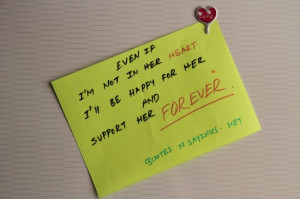 EVEN IF
I'M NOT IN HER HEART
I'LL BE HAPPY FOR HER
AND
SUPPORT HER FOREVER.
QUOTES N SAYINGS. NET